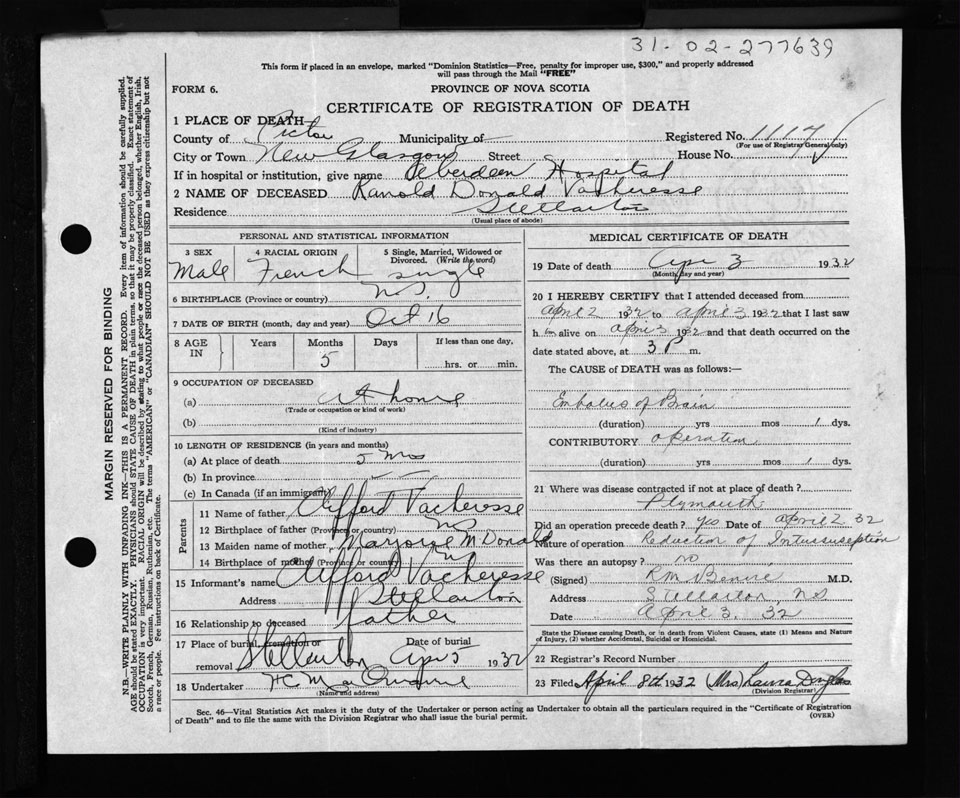 31-02-277639
This form if placed in an envelope, marked "Dominion Statistics—Free, penalty for improper use, $300," and properly addressed
will pass through the Mail "FREE"
FORM 6. PROVINCE OF NOVA SCOTIA
CERTIFICATE OF REGISTRATION OF DEATH
1 PLACE OF DEATH—
County of Pictou Municipality of Registered No. 11117
(For use of Registrar General only)
City or Town New Glasgow Street House No.
If in hospital or institution, give name Aberdeen Hospital
2 NAME OF DECEASED Ranold Donald Vacheresse
Residence Stellarton
(Usual place of abode)
MARGIN RESERVED FOR BINDING
N.B.—WRITE PLAINLY WITH UNFADING INK—THIS IS A PERMANENT RECORD. Every item of information should be carefully supplied.
AGE should be stated EXACTLY. PHYSICIANS should STATE CAUSE OF DEATH in plain terms, so that it may be properly classified. Exact statement of
OCCUPATION is very important. RACIAL ORIGIN will be described by stating to what people or race the deceased person belonged, whether English, Irish,
Scotch, French, German, Russian, Ruthenian, etc. The terms "AMERICAN" or "CANADIAN" SHOULD NOT BE USED as they express citizenship but not
a race or people. See instructions on back of Certificate.
PERSONAL AND STATISTICAL INFORMATION
3 SEX 4 RACIAL ORIGIN 5 Single, Married, Widowed or
Divorced. (Write the word)
Male French single
6 BIRTHPLACE (Province or country) N.S.
7 DATE OF BIRTH (month, day and year) Oct 16
8 AGE IN Years Months Days If less than one day,
5 hrs. or min.
9 OCCUPATION OF DECEASED
(a) At home
(Trade or occupation or kind of work)
(b)
(Kind of industry)
10 LENGTH OF RESIDENCE (in years and months)
(a) At place of death 5 Mos
(b) In province
(c) In Canada (if an immigrant)
Parents
11 Name of father Clifford Vacheresse
12 Birthplace of father (Province or country) NS
13 Maiden name of mother Marjorie McDonald
14 Birthplace of mother (Province or country)
15 Informant's name Clifford Vacheresse
Address Stellarton
16 Relationship to deceased father
17 Place of burial, cremation or Date of burial
removal Stellarton Apr 5 1932
18 Undertaker
(Name and address)
MEDICAL CERTIFICATE OF DEATH
19 Date of death Apr 3 1932
(Month, day and year)
20 I HEREBY CERTIFY that I attended deceased from
April 2 1932 to April 3 1932 that I last saw
h im alive on April 3 1932 and that death occurred on the
date stated above, at 3 P m.
The CAUSE of DEATH was as follows:—
Embolus of Brain
(duration) yrs mos 1 dys.
CONTRIBUTORY operation
(duration) yrs mos 1 dys.
21 Where was disease contracted if not at place of death?
Plymouth
Did an operation precede death? yes Date of April 2 32
Nature of operation Reduction of Intussuseption
Was there an autopsy? no
(Signed) R.M. Benvie M.D.
Address Stellarton, NS
Date April 3, 32
State the Disease causing Death, or in death from Violent Causes, state (1) Means and Nature
of Injury, (2) whether Accidental, Suicidal or Homicidal.
22 Registrar's Record Number
23 Filed April 8th 1932 (Mrs) Laura Douglas
(Division Registrar)
Sec. 46—Vital Statistics Act makes it the duty of the Undertaker or person acting as Undertaker to obtain all the particulars required in the "Certificate of Registration
of Death" and to file the same with the Division Registrar who shall issue the burial permit. (OVER)